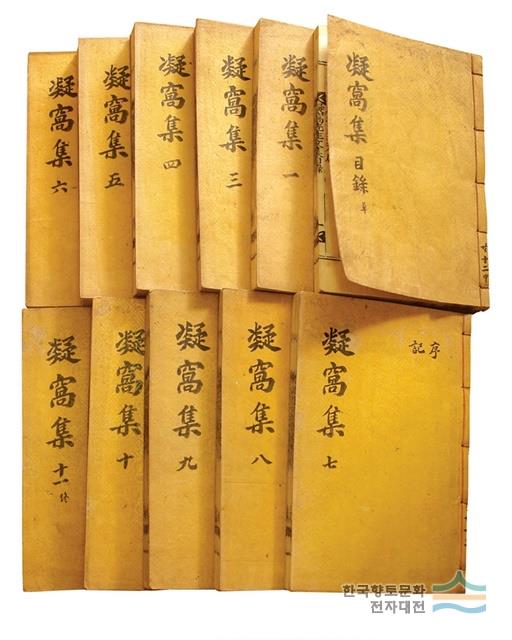 凝窩集 目錄 單
共十二冊
凝窩集 一
凝窩集 三
凝窩集 四
凝窩集 五
凝窩集 六
凝窩集 七
序
記
凝窩集 八
凝窩集 九
凝窩集 十
凝窩集 十一 終
한국향토문화
전자대전